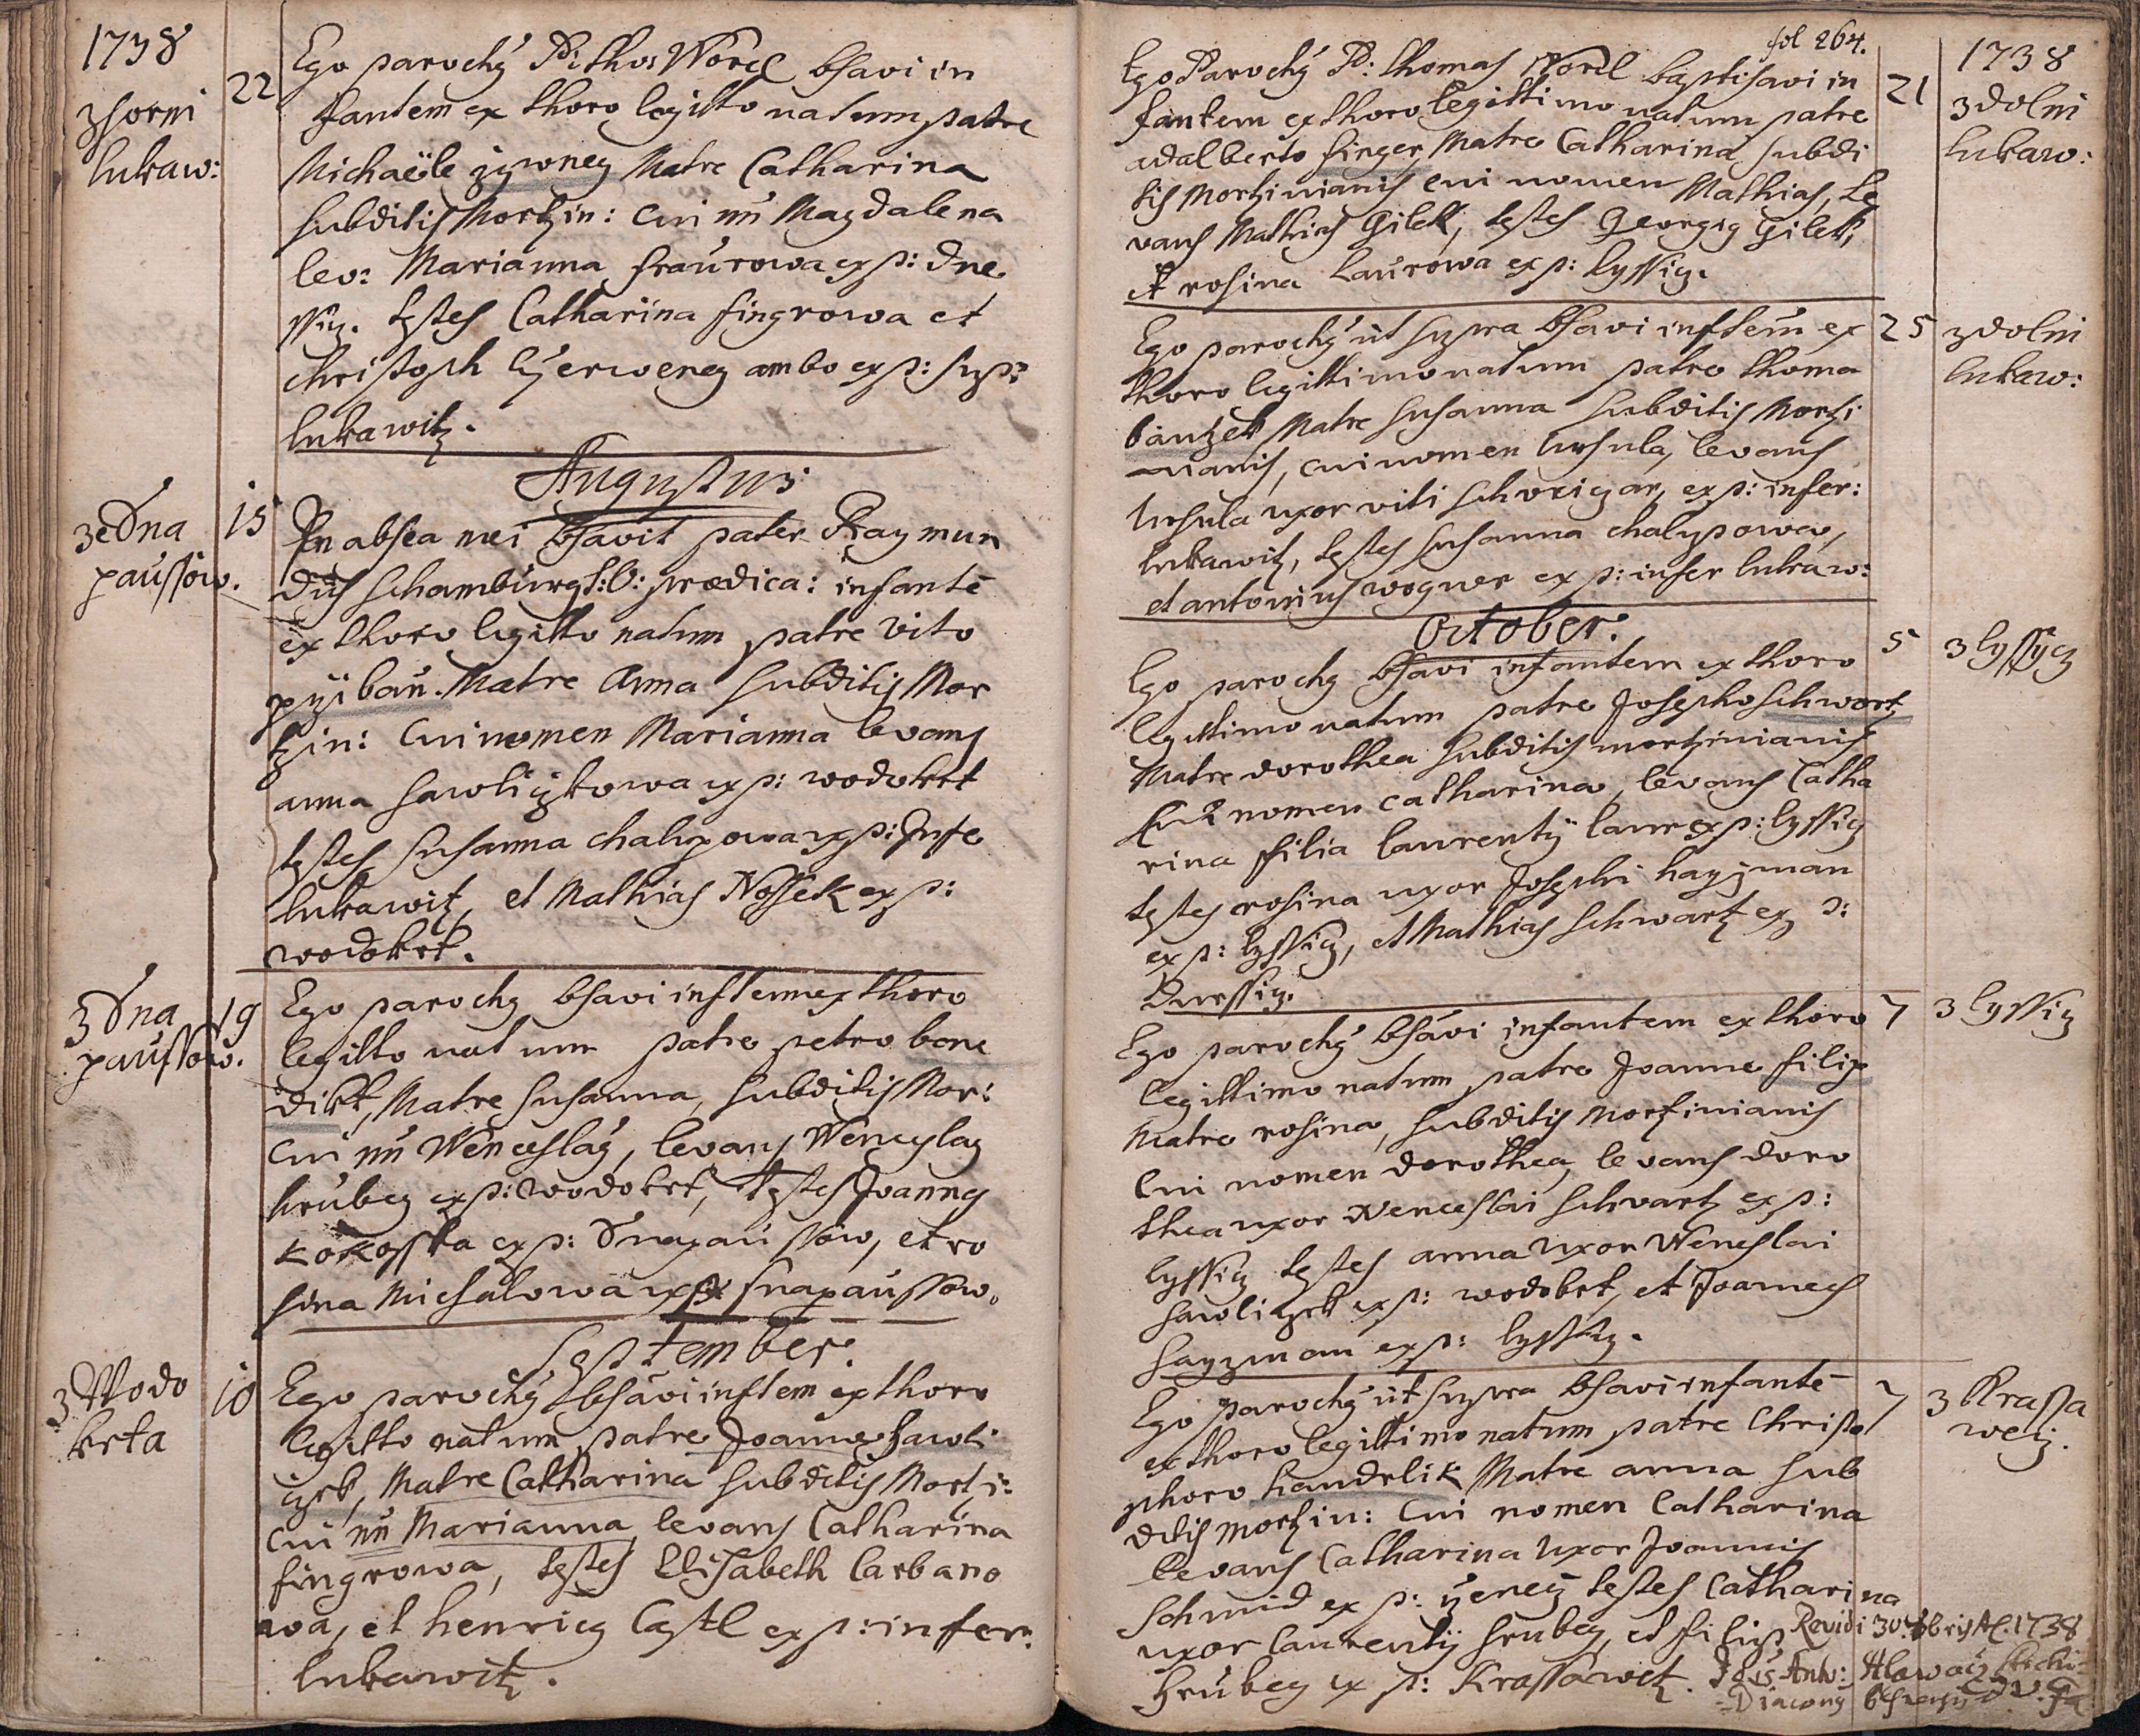 1738
z horni
lukaw:
22
Ego parochy P: tho: Worel bsavi in
fantem ex thoro legitto natum patre
Michaële zywney Matre Catharina
subditis Mortzin: cui nn Magdalena
lev: Marianna fraurowa ex p: dne
ssitz. testes Catharina fingrowa et
Christoph czerweney ambo ex p: sup:
lukawitz.
Augustus
zedna
paussow.
15
In absea mei bsavit pater Raymun
dus schamburg S:O: prædica: infantē
ex thoro legitto natum patre vito
pziban. Matre Anna subditis Mor
tzin: Cui nomen Marianna levans
anna hawliczkowa ex p: wodokrt
testes susanna chalupowa ex p: Infe
lukawitz, et Mathias Nossek ex p:
wodokrt.
z dna
paussow.
19
Ego parochy bsavi inftem ex thoro
legitto natum patre petro bene
dikt, Matre susanna, subditis Mor:
cui nn Wenceslay, levans Wenceslay
hrubey ex p: wodokrt, testes Joannes
kokosska ex p: dnapaussow, et ro
sina Michalowa ex p: snapaussow.
September.
z Wodo
krta
10
Ego parochy bsavi inftem ex thoro
legitto natum patre Joanne hawli
czek, Matre Catharina subditis Mortzi:
cui nn Marianna levans Catharina
fingrowa, testes Elisabeth Carbano
wa, et henricy Castl ex p: infer:
lukawitz.
fol 264.
1738
z dolni
lukaw:
21
Ego Parochy P: thomas Worel baptisavi in
fantem ex thoro legittimo natum patre
adalberto finger Matre Catharina subdi
tis Mortzinianis cui nomen Mathias, le
vans Mathias Gilek, testes Georgig Gilek,
et rosina Laurowa ex p: lyssitz.
25
z dolni
lukaw:
Ego parochy ut supra bsavi inftem ex
thoro legittimo natum patre thoma
bautzek Matre susanna subditis Mortzi
nianis, cui nomen Ursula, levans
Ursula uxor viti schweigar, ex p: infer:
lukawitz, testes susanna chalupowa,
et antonius wogner ex p: infer lukaw:
October.
5
z lyssycz
Ego parochy bsavi infantem ex thoro
legittimo natum patre Josepho schwortz
Matre dorothea subditis mortzinianis
Cui nomen catharina, levans Catha
rina filia laurentij laur ex p: lyssitz
testes rosina uxor Josephi hayzman
ex p: lyssitz, et Mathias schwartz ex p:
dnessitz.
7
z lyssitz
Ego parochy bsavi infantem ex thoro
legittimo natum patre Joanne filip
Matre rosina, subditis Mortzinianis
Cui nomen dorothea, levans doro
thea uxor Wenceslai schvartz ex p:
lyssitz testes anna uxor Wenceslai
hawliczek ex p: wodokrt, et Joannes
hayzman ex p: lyssitz.
7
z Krassa
wecz.
Ego parochy ut supra bsavi infantē
ex thoro legittimo natum patre Christo
phoro handrlik Matre anna sub
ditis Mortzin: Cui nomen Catharina
levans Catharina uxor Joannis
schmid ex p: yeney testes Catharina
uxor laurentij hrubey, et filip
hrubey ex p: Krassawetz.
Revidi 30 7bris A: 1738